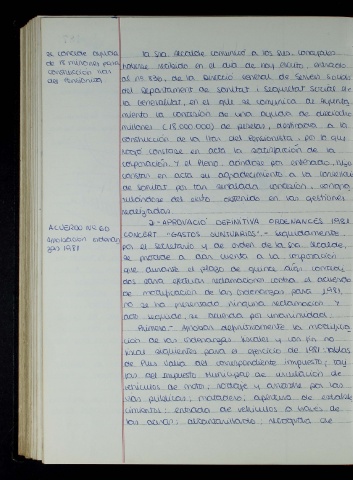 Se concede ayuda
de 18 millones para
construcción llar
del Pensionista
La Sra. Alcalde comunicó a los Sres. Concejales
haberse recibido en el día de hoy escrito, entrada
de la Dirección General de Serveis Socials
del Departament de Sanitat i Seguretat Social de
la Generalitat, en el que se comunica al Ayunta-
miento la concesión de una ayuda de dieciocho
millones (18.000.000) de pesetas, destinada a la
construcción de la llar del Pensionista, por lo que
constase en acta la satisfacción de la
corporación. Y el Pleno, dándose por enterado, hizo
constar en acta su agradecimiento a la Conselleria
de Sanitat por tan señalada concesión, congra-
tulándose del éxito obtenido en las gestiones
realizadas.
ACUERDO Nº 60
Aprobación ordenan-
zas 1981
2.- APROVACIÓ DEFINITIVA ORDENANCES 1981.
CONCERT "GASTOS SUNTUARIOS".- Seguidamente
por el Secretario y de orden de la Sra. Alcalde,
se procede a dar cuenta a la corporación
que durante el plazo de quince días conce-
didos para efectuar reclamaciones contra el acuerdo
de modificación de las Ordenanzas para 1981,
no se ha presentado ninguna reclamación y
acto seguido, se acuerda por unanimidad:
Primero.- Aprobar definitivamente la modifica-
ción de las Ordenanzas fiscales y con fin no
fiscal siguientes para el ejercicio de 1981: tablas
de Plus Valía del correspondiente impuesto; tari-
fas del impuesto Municipal de circulación de
vehículos de motor; rodaje y arrastre por las
vías públicas; matadero; apertura de estable-
cimientos; entrada de vehículos a través de
las aceras; alcantarillado; recogida de